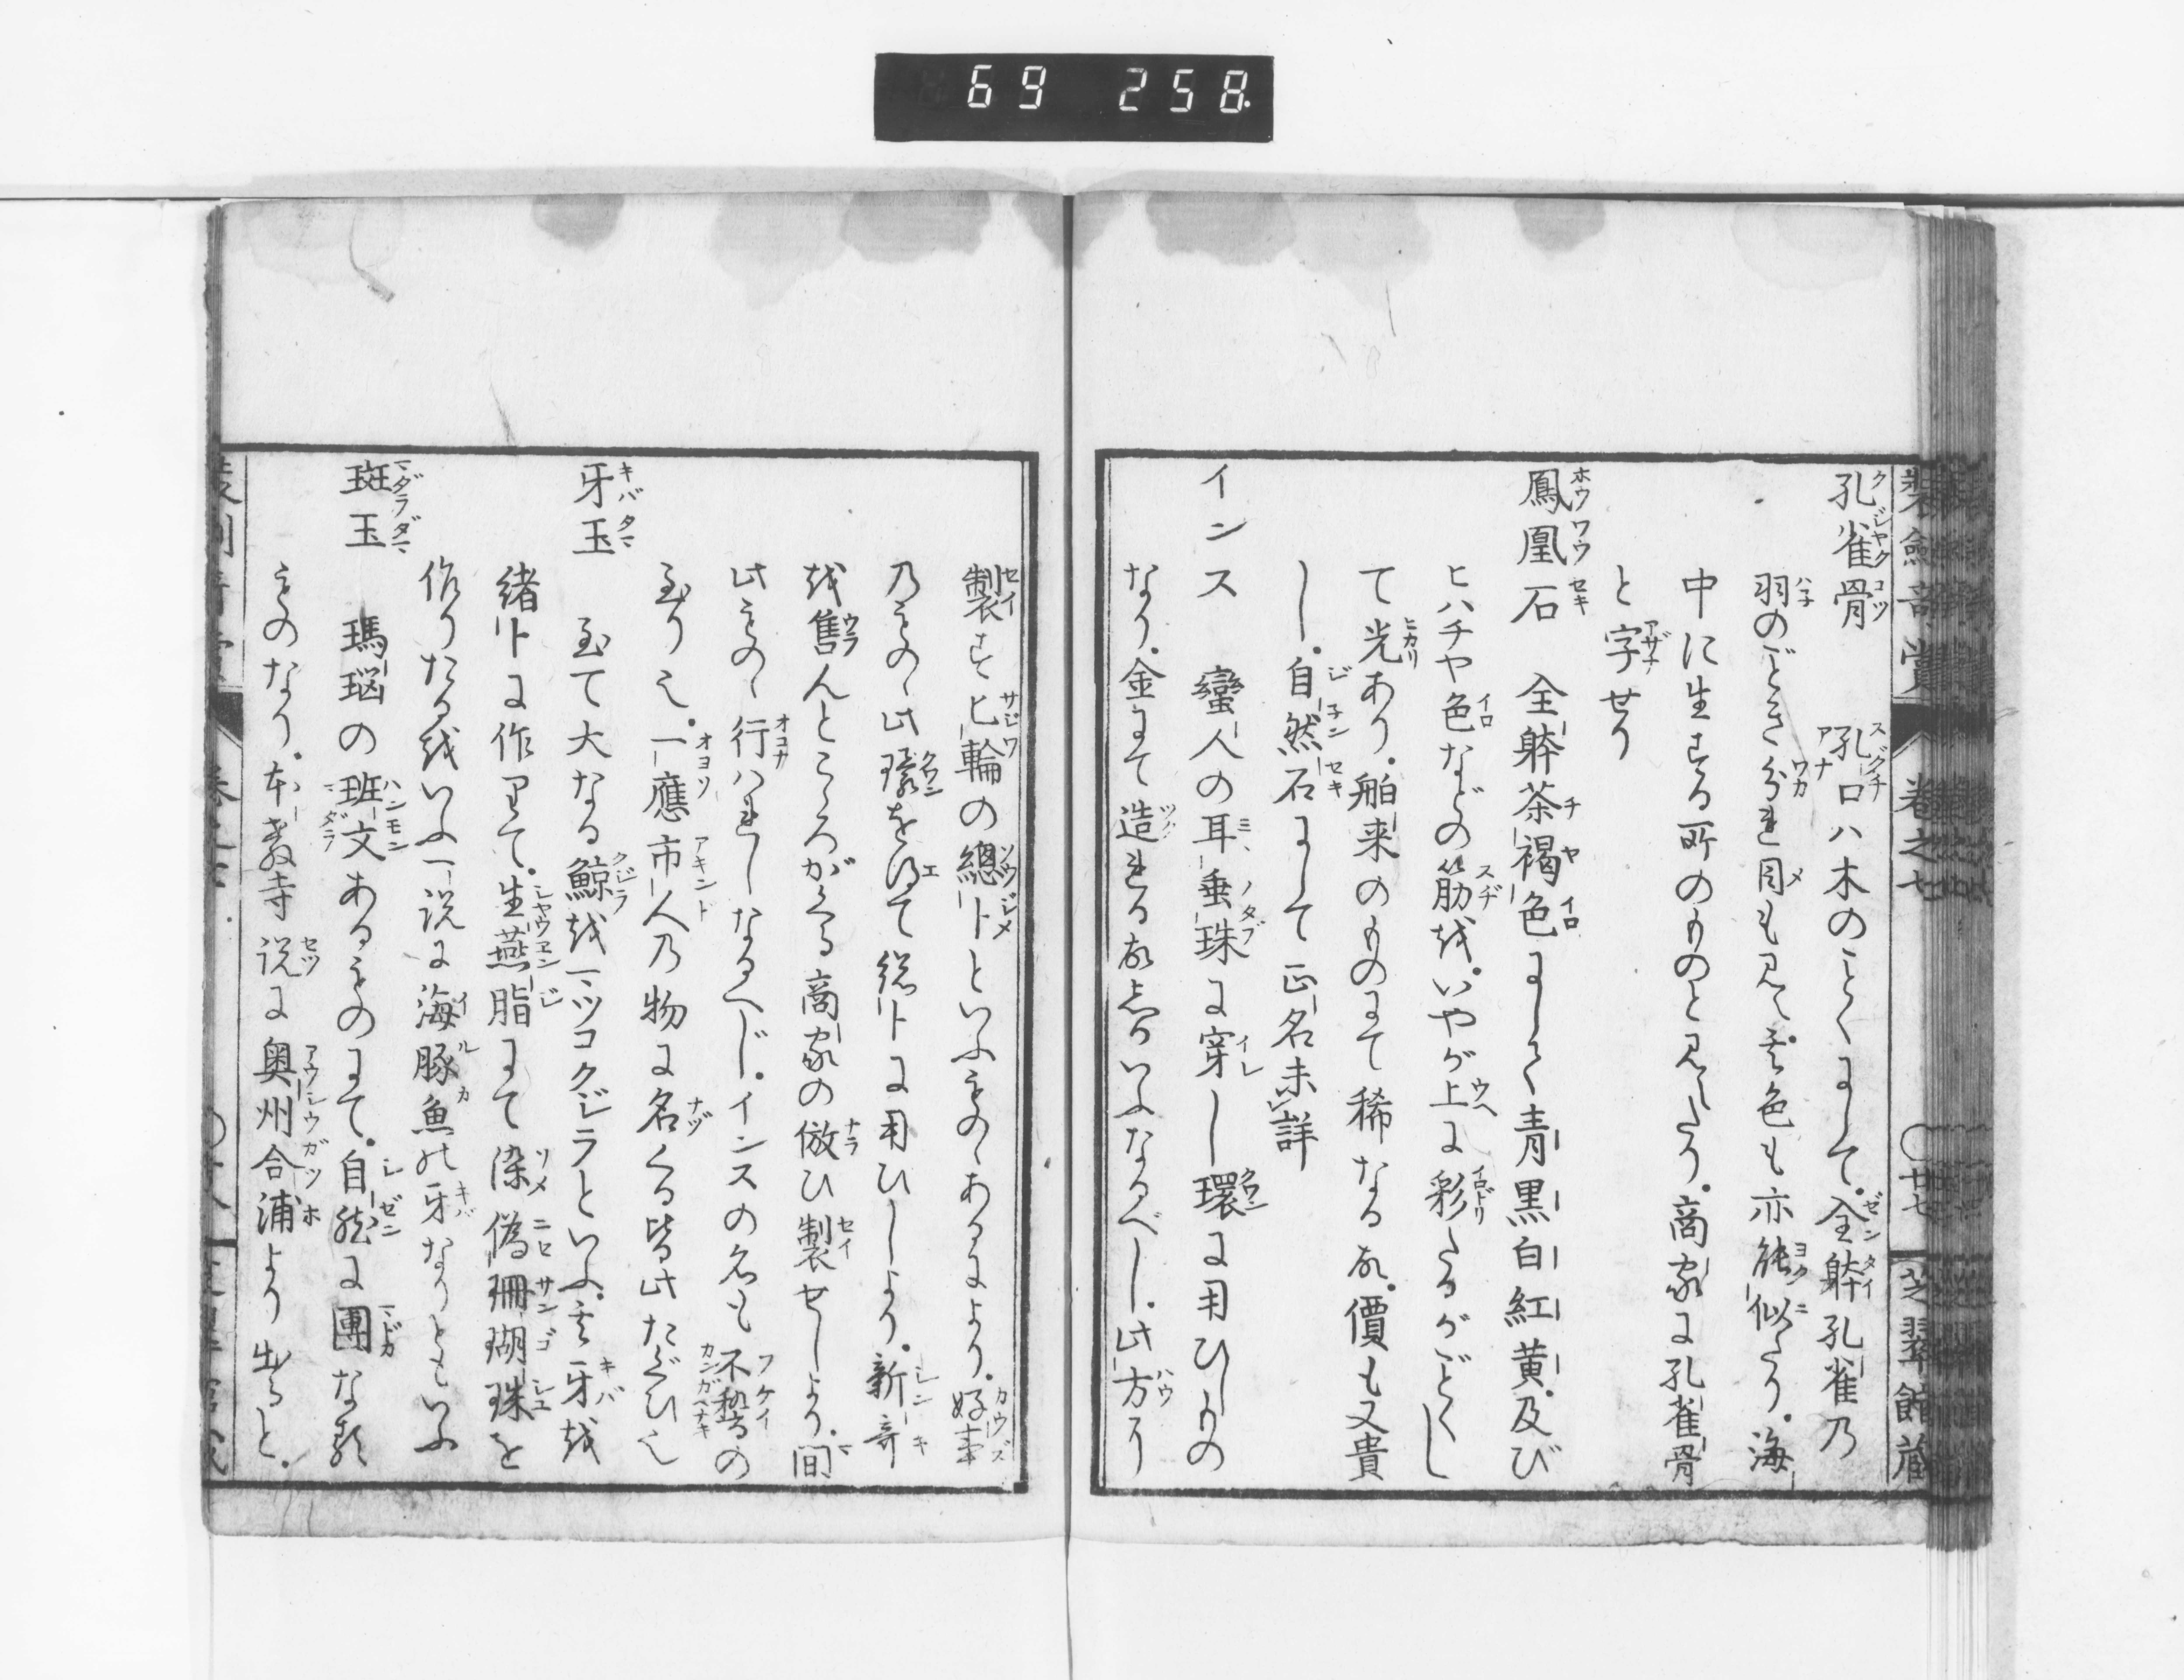 69 258
装劔奇賞 巻之七 廿七 芝翠館蔵
孔雀骨 孔口ハ木のことくにして。全躰孔雀乃
羽のごとき分れ目も見へ。其色も亦能似たり。海
中に生ずる所のものと見へたり。商家に孔雀骨
と字せり
鳳凰石 全躰茶褐色にして青黒白紅黄。及び
ヒハチや色などの筋を。いやが上に彩たるがごとくし
て光あり。舶来のものにて稀なる故。價も又貴
し。自然石にして正名未詳
インス 蠻人の耳垂珠に穿し環に用ひしもの
なり。金にて造れる故志かいふなるべし。此方り
製す匕輪の總卜といふもの、あるにより。好事
乃もの、此環を得て総卜に用ひしより。新奇
を售んところがくる商家の倣ひ製せしより。間
此もの、行ハれしなるべじ。インスの名も不稽の
至り也。一應市人乃物に名くる皆此たぐひ也
牙玉 至て大なる鯨を一ツコクジラといふ。其牙を
緒卜に作りて。生燕脂にて染偽珊瑚珠を
作りたるをいふ一説に海豚魚の牙なりともいふ
斑玉 瑪瑙の班文あるものにて。自然に團な類
ものなり。本教寺説に奥州合浦より出ると。